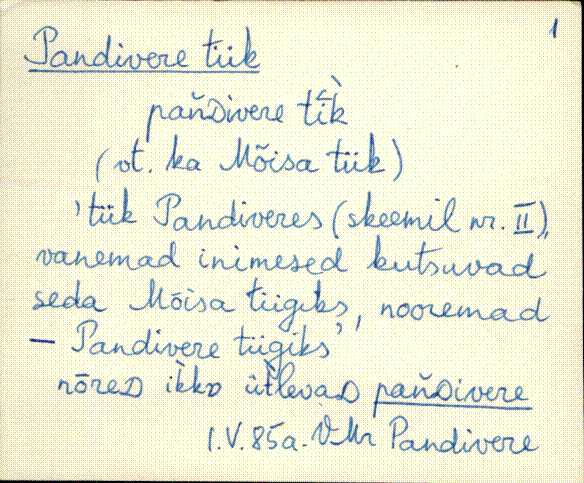 1
Pandivere tiik
pañDivere tìk
(vt. ka Mõisa tiik)
'tiik Pandiveres (skeemil nr. II),
vanemad inimesed kutsuvad
seda Mõisa tiigiks, nooremad
– Pandivere tiigiks',
nōreD ìkkD ütlevaD pañDivere
1.V.85a. VMr Pandivere